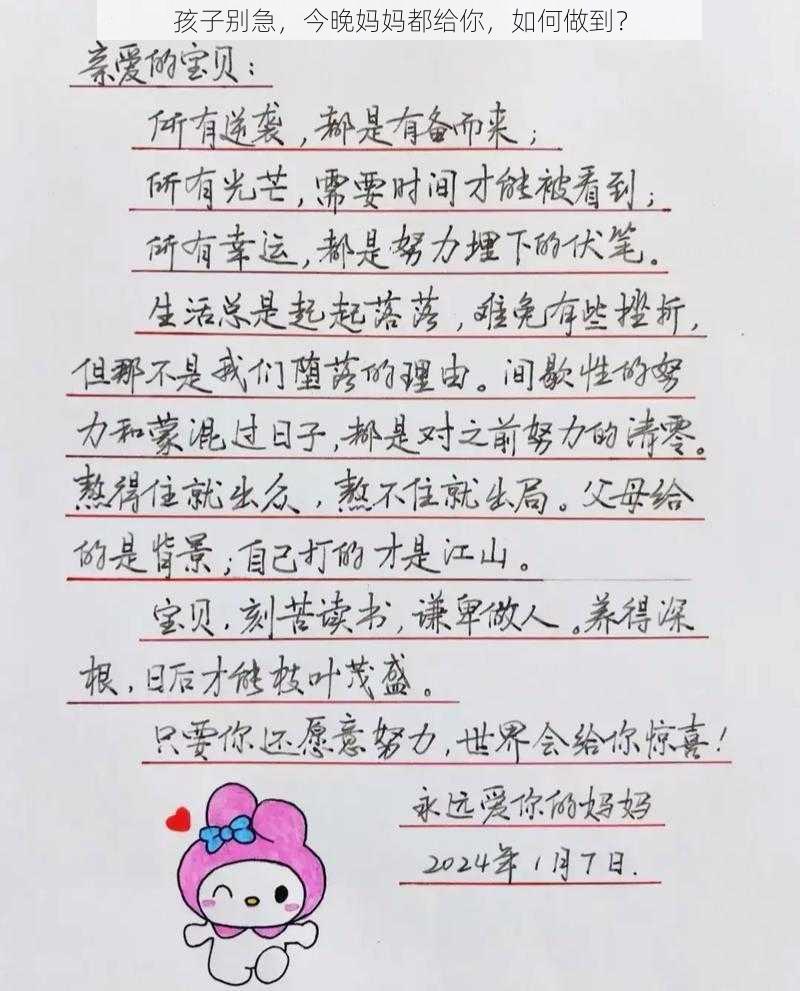 孩子别急，今晚妈妈都给你，如何做到？
亲爱的宝贝：
所有逆袭，都是有备而来；
所有光芒，需要时间才能被看到；
所有幸运，都是努力埋下的伏笔。
生活总是起起落落，难免有些挫折，
但那不是我们堕落的理由。间歇性的努
力和蒙混过日子，都是对之前努力的清零。
熬得住就出众，熬不住就出局。父母给
的是背景；自己打的才是江山。
宝贝，刻苦读书，谦卑做人。养得深
根，日后才能枝叶茂盛。
只要你还愿意努力，世界会给你惊喜！
永远爱你的妈妈
2024年1月7日.